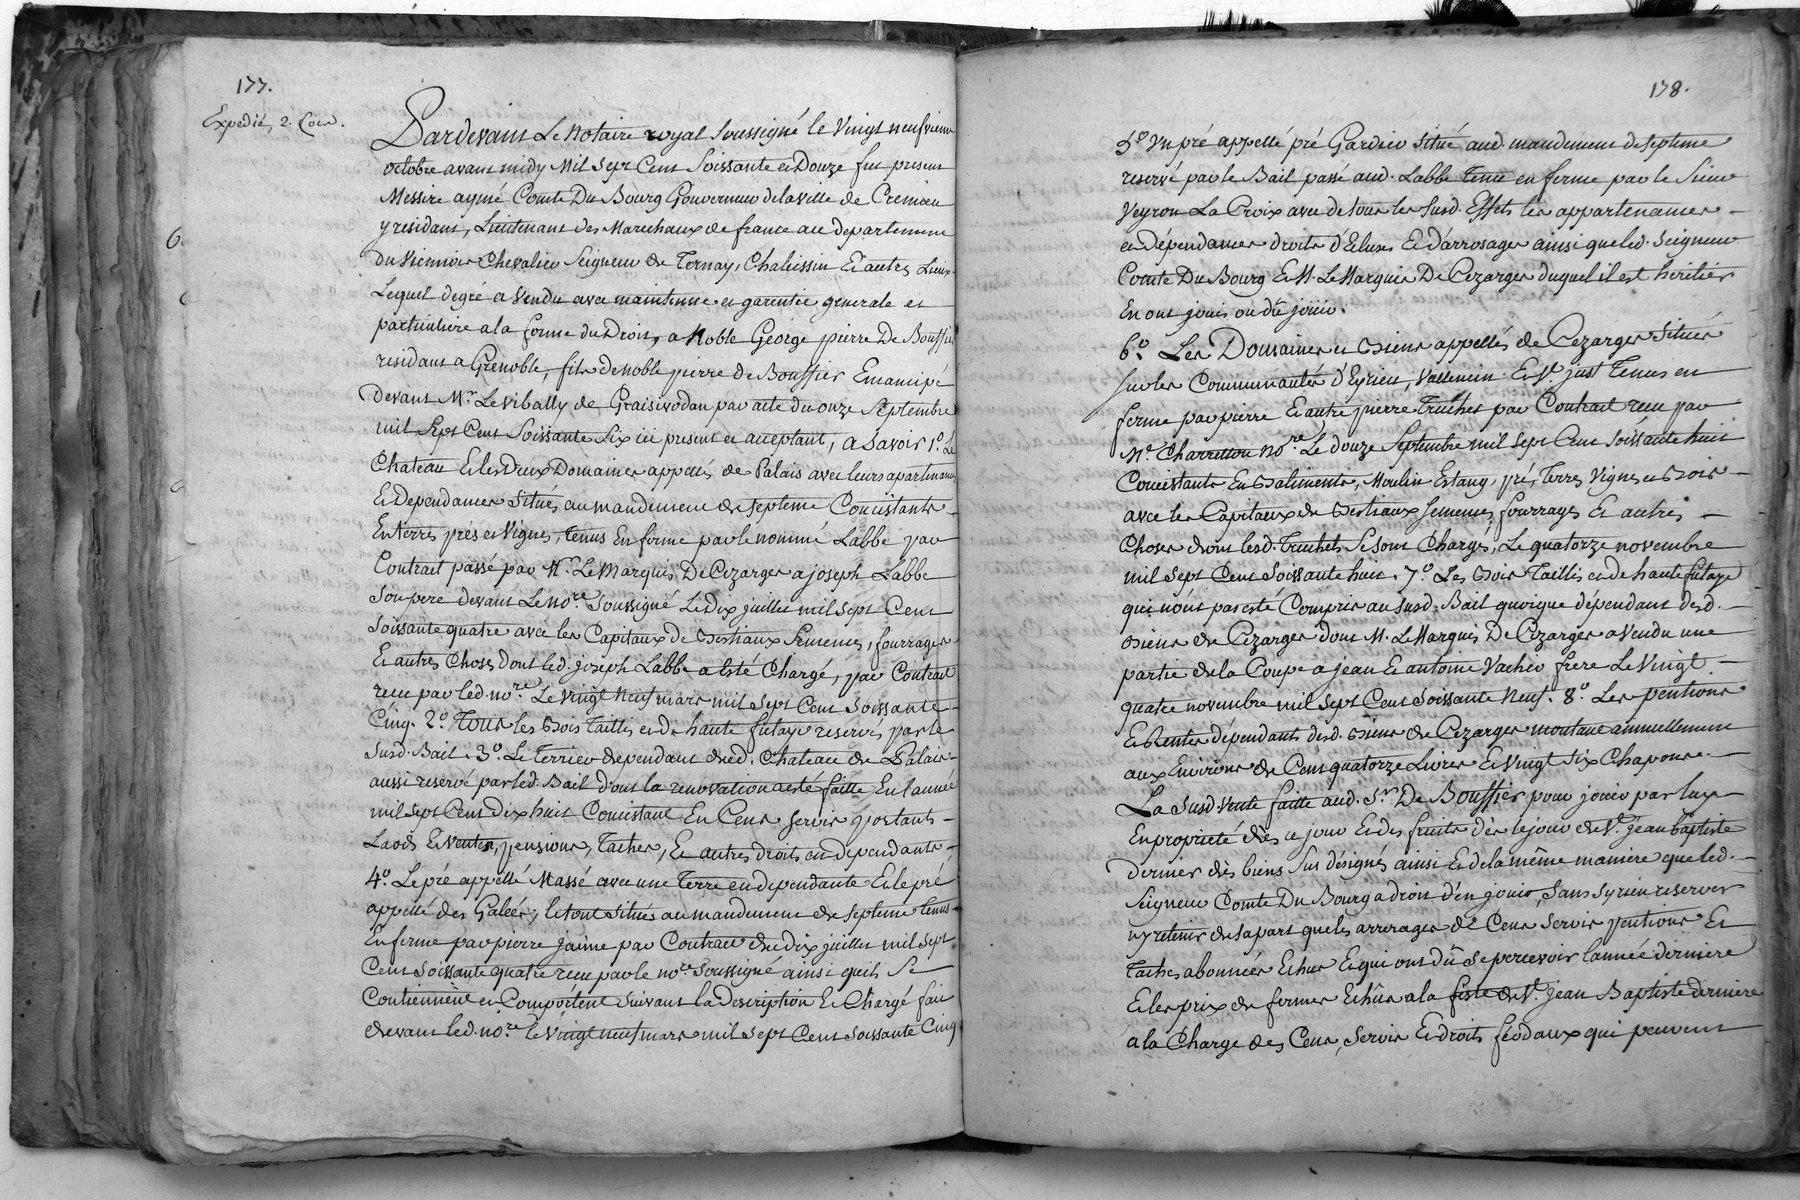 177.
Expedié, 2. fois.
Pardevant Le Notaire royal soussigné le Vingt neufvieme
octobre avant midy Mil sept Cent Soissante et Douze fut present
Messire aymé Comte Du Bourg Gouverneur de la ville de Cremieu
y residant, Lieutenant des Marechaux de france au departement
du Viennois Chevalier Seigneur de Ternay, Chaleissin Et autres Lieux
Lequel degré a Vendu avec maintenue et garentie generale et
particuliere a la forme du Droit, a Noble George pierre De Bouffier
residant a Grenoble, fils de noble pierre de Bouffier Emancipé
Devant Mr. Le vibally de Graisivodan par acte du onze Septembre
mil Sept Cent Soissante Six ici present et acceptant, a Savoir 1.o Le
Chateau Et les Deux Domaines appellés de Palais avec leurs apartenances
Et Dependances Situés au mandement de Septeme Concistants
En terres prés et Vignes, tenus En ferme par le nommé Labbé par
Contrait passé par Mr. Le Marquis De Cezarges a joseph Labbe
Son pere devant Le no.re Soussigné Le Dix juillet mil sept Cent
Soissante quatre avec les Capitaux de Bestiaux Semences, fourrages
Et autres Choses dont led. joseph Labbe a Esté Chargé, par Contrait
receu par led. no.re Le Vingt Neuf mars mil Sept Cent Soissante
Cinq. 2.o Tous les Bois Taillis et de haute futaye reservés par le
Susd. Bail. 3.o Le Terrier dependant dud. Chateau de Palais
aussi reservé par led. Bail dont la renovation a esté faitte En l'année
mil sept Cent Dix huit Concistant En Cens Servis portants
Laods Et Ventes, pensions, Taches, Et autres droits en dependants
4.o Le pré appellé Massé avec une Terre en dependante Et le pré
appellé des Galées, le tout Situés au mandement de Septeme tenus
En ferme par pierre jaime par Contract du dix juillet mil sept
Cent soissante quatre receu par le no.re Soussigné ainsi quils Se
Contiennent et Comportent Suivant la Description Et Chargé fait
devant led. no.re le Vingt neuf mars mil Sept Cent Soissante Cinq
178.
5.o Un pré appellé pré Gardieu situé aud. mandement de Septeme
reservé par le Bail passé aud. Labbe Tenu en ferme par le Sieur
Veyron La Croix avec de tous les Susd. Effets les appartenances
et Dépendances droits d'Ecluses Et d'arrosages ainsi que led. Seigneur
Comte Du Bourg Et M. Le Marquis De Cezarges duquel il est héritier
En ont jouis ou dû jouir.
6.o Les Domaines et Biens appellés de Cezarges Situés
sur les Communautés d'Eyrieu, Vallencin Et St. just Tenus en
ferme par pierre Et autre pierre Truchet par Contrait receu par
Me. Charretton no.re Le douze Septembre mil Sept Cent Soissante huit
Concistants En Batiments, Moulin Estang, prés, Terres Vignes et Bois
avec les Capitaux de Bestiaux Semences, fourrages Et autres
Choses dont lesd. Truchets Se sont Chargés, Le quatorze novembre
mil Sept Cent Soissante huit. 7.o Les Bois Taillis et de haute futaye
qui n'ont pas esté Compris au Susd. Bail quoique dépendant desd.
Biens de Cezarges dont M. Le Marquis De Cezarges a Vendu une
partie de la Coupe a jean Et antoine Vacher frere Le Vingt
quatre novembre mil Sept Cent Soissante Neuf. 8.o Les pentions
Et Rentes dépendants desd. Biens de Cezarges montant annuellement
aux Environs de Cent quatorze Livres Et Vingt Six Chapons.
La Susd. vente faitte aud. Sr. De Bouffier pour jouir par luy
En proprieté dès ce jour Et des fruits dès le jour de St. jean Baptiste
Dernier dès biens Sus désignés ainsi Et de la même maniere que led.
Seigneur Comte Du Bourg a droit d'en jouir, Sans s'y rien reserver
n'y retenir de sa part que les arrerages de Cens Servis pentions Et
Taches abonnées Echus Et qui ont dû Se percevoir l'année derniere
Et les prix de fermes Echûs a la feste de St. jean Baptiste derniere
à la Charge des Cens, Servis Et Droits féodaux qui peuvent